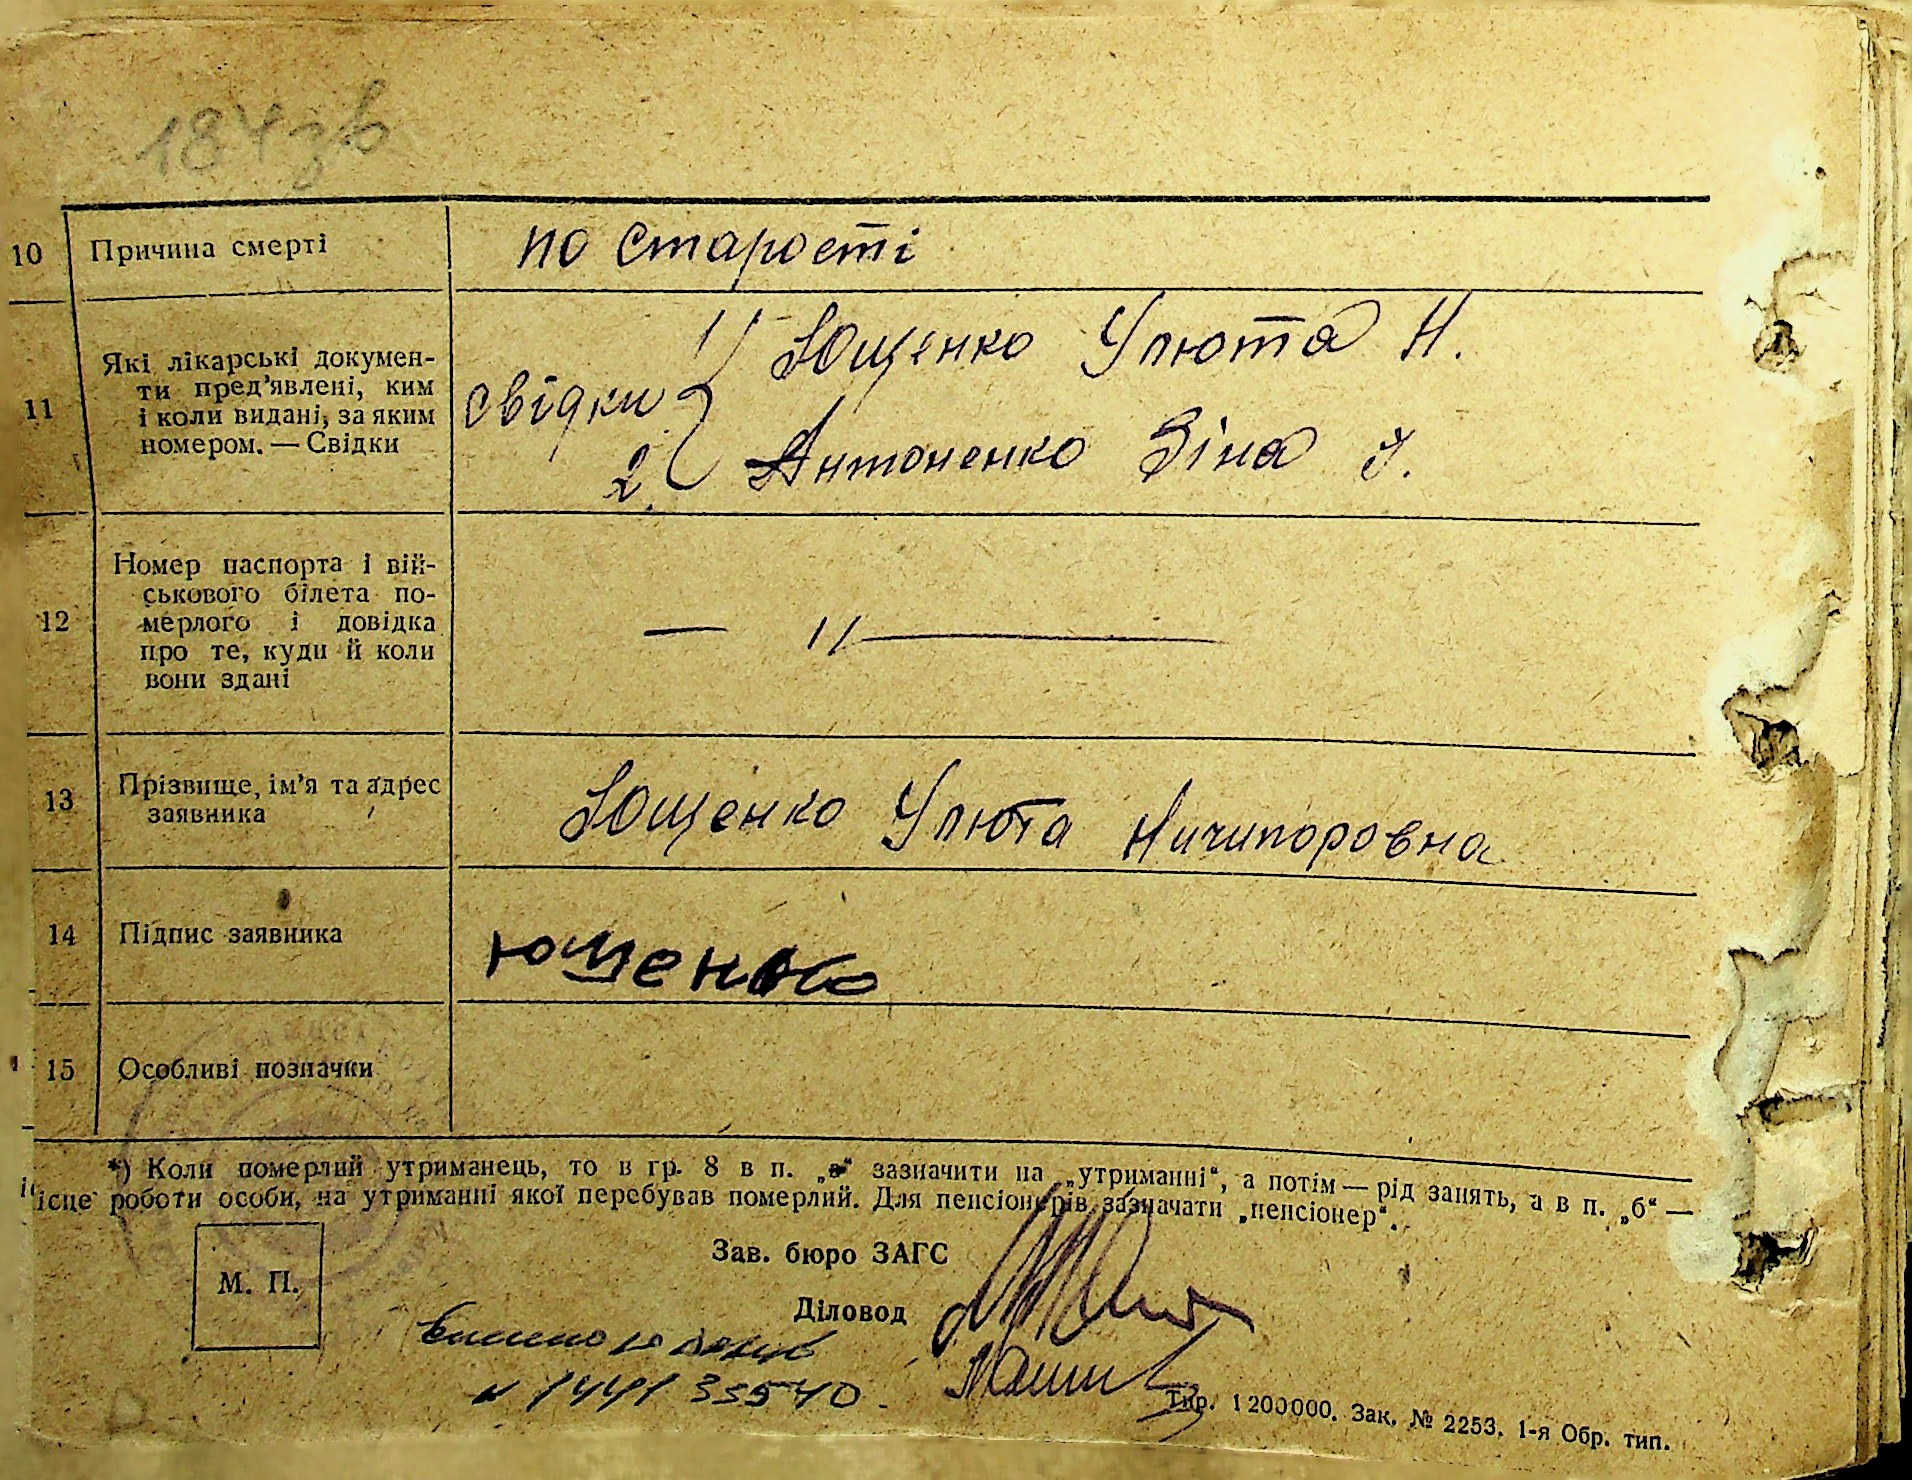 187зв
10 Причина смерті по старості
Які лікарські докумен-
ти пред'явлені, ким
11 і коли видані, за яким
номером. — Свідки
свідки
1) Ющенко Улюта Н.
2. Антоненко Зіна
Номер паспорта і вій-
ськового білета по-
12 мерлого і довідка
про те, куди й коли
вони здані
— // —
13 Прізвище, ім'я та адрес
заявника
Ющенко Улюта Ничипоровна
14 Підпис заявника Ющенко
15 Особливі позначки
*) Коли померлий утриманець, то в гр. 8 в п. „а“ зазначити на „утриманні“, а потім — рід занять, а в п. „б“ —
ісце роботи особи, на утриманні якої перебував померлий. Для пенсіонерів зазначати „пенсіонер“.
Зав. бюро ЗАГС
М. П.
Діловод
Тир. 1200000. Зак. № 2253. 1-я Обр. тип.